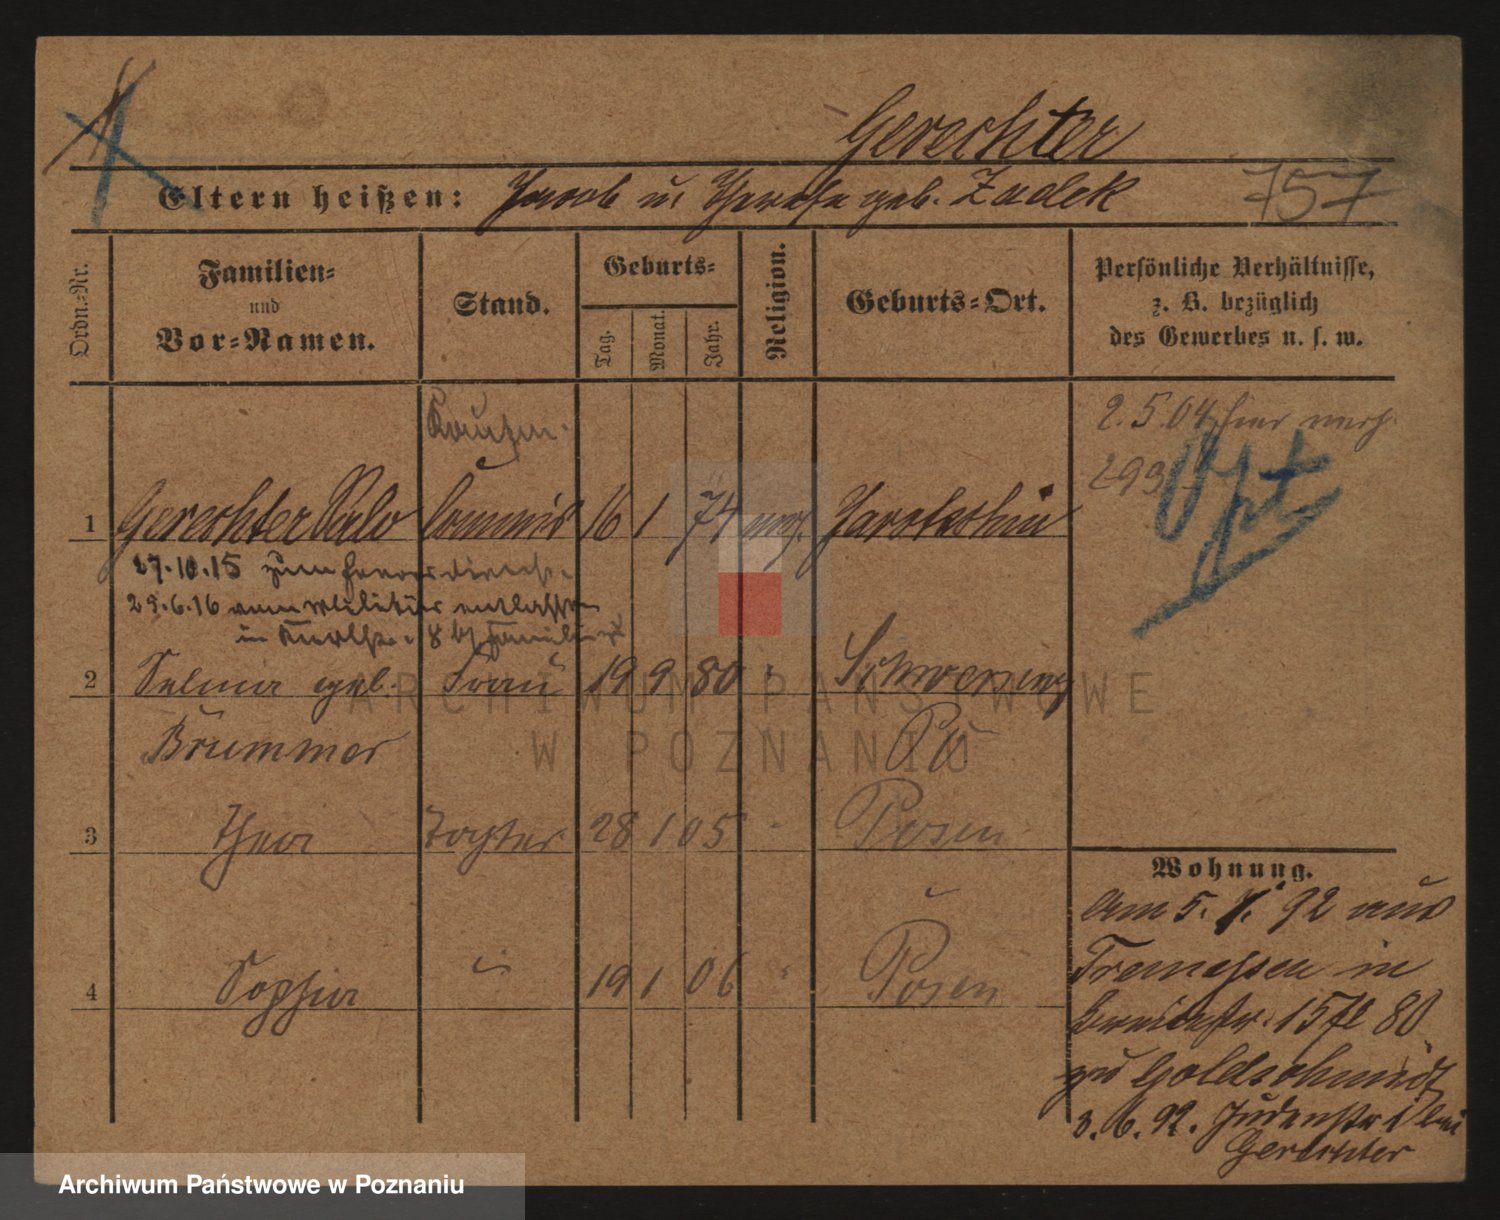 Gerechter
Eltern heißen: Jacob u. Therese geb. Zadek 757
Ordn.-Nr.
Familien- und Vor-Namen.
Stand.
Geburts-
Tag. Monat. Jahr.
Religion.
Geburts-Ort.
Persönliche Verhältnisse,
z. B. bezüglich
des Gewerbes u. s. w.
Kaufm.
2.5.04 hier
Opt
1 Gerechter Salo Commis 16 1 74 mos. Jarotschin
27.10.15 zum
29.6.16 vom Militär entlassen
in
2 Selma geb. Frau 19 9 80 "
Brummer
3 Thea Tochter 28 1 05 Posen
4 Sophia " 19 1 06 Posen
Wohnung.
Am 5. 1. 92 aus
Tremessen in
Breitestr. 15 80
zu Goldschmidt
3. 6. 92. Judenstr 1 bei
Gerechter
ARCHIWUM PAŃSTWOWE
W POZNANIU
Archiwum Państwowe w Poznaniu